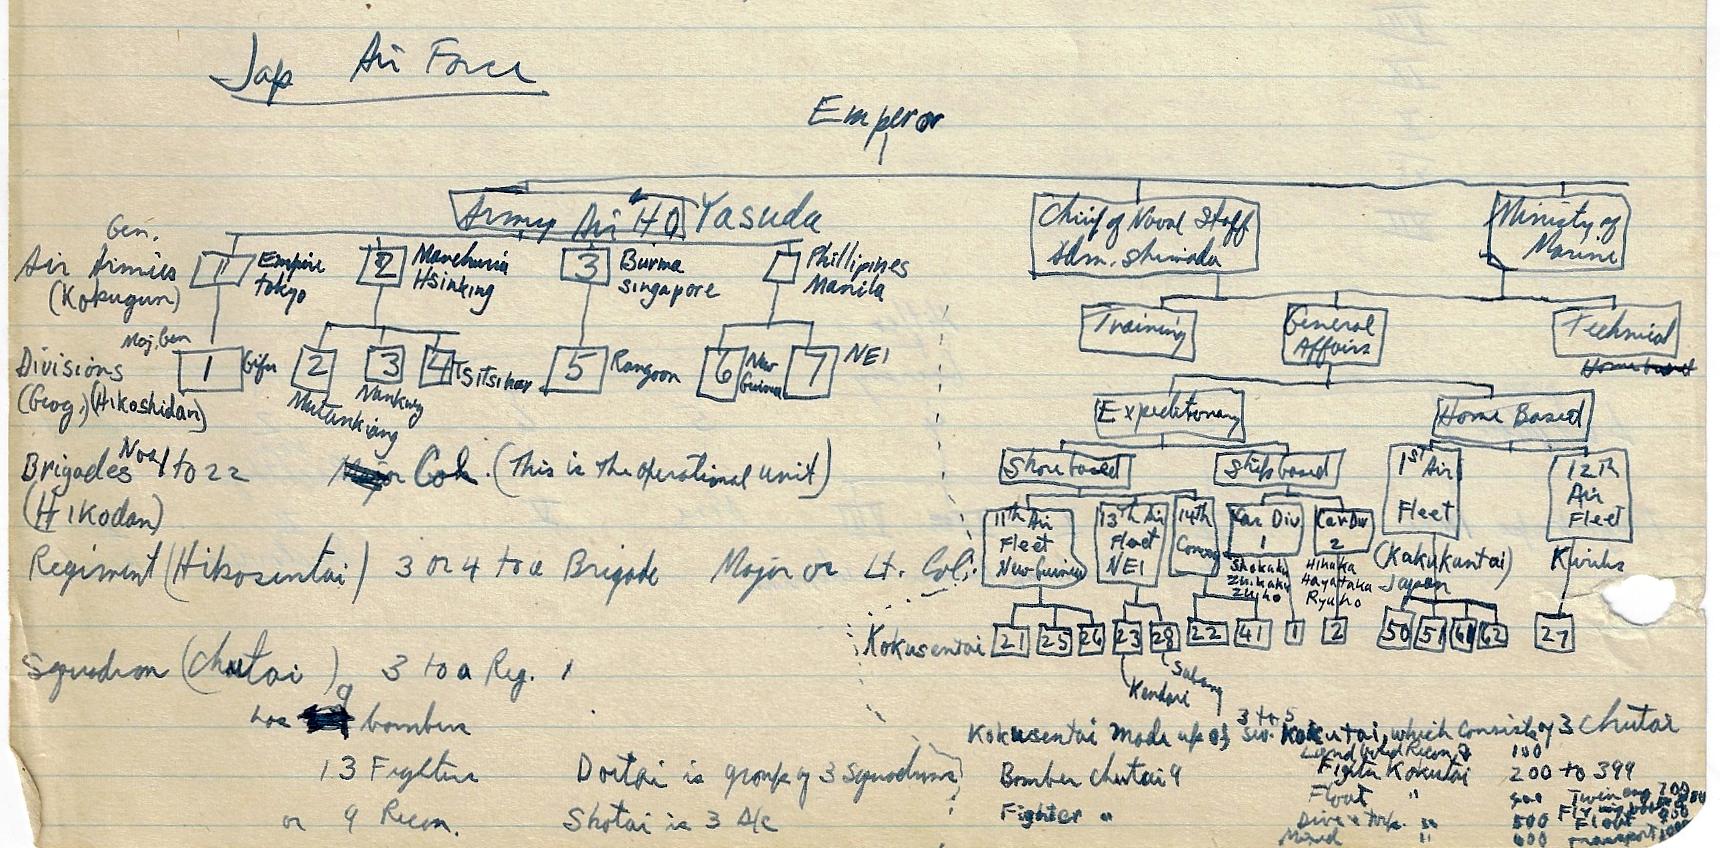 Jap Air Force
Emperor
Army Air HQ Yasuda
Chief of Naval Staff
Adm. Shimada
Ministry of
Marine
Gen.
Air Armies
(Kokugun)
1 Empire
Tokyo
2 Manchuria
Hsinking
3 Burma
Singapore
Phillipines
Manila
Training
General
Affairs
Technical
Home based
Maj. Gen
Divisions
(Geog.) (Hikoshidan)
1 Gifu
2
Mutankiang
3
4 Tsitsihar
5 Rangoon
6 New
Guinea
7 NEI
Expeditionary
Home Based
Brigades Nos 1 to 22
(Hikodan)
Major Col. (This is the operational unit)
Shore based
Ships based
1st Air
Fleet
(Kakukuntai)
Japan
12th
Air
Fleet
11th Air
Fleet
New Guinea
13th Air
Fleet
NEI
14th
Convoy
Car Div
1
Shokaku
Zuikaku
Zuiho
Car Div
2
Hitaka
Hayataka
Ryuho
Regiment (Hikosentai) 3 or 4 to a Brigade Major or Lt. Col.
Kokusentai 21 25 26 23 28 22 41 1 2 50 51 61 62 27
Kendari
Sabang
Squadron (Chutai) 3 to a Reg.
has 9 bombers
13 Fighters
or 9 Recon.
Daitai is group of 3 Squadrons
Shotai is 3 A/c
Kokusentai made up of 3 to 5 Kokutai, which consists of 3 Chutai
Bomber chutai 9
Fighter "
Land based Recon 100
Fighter Kokutai 200 to 399
Float "
Twin eng 700
500 Float 950
Mixed " 600 Transport 1000